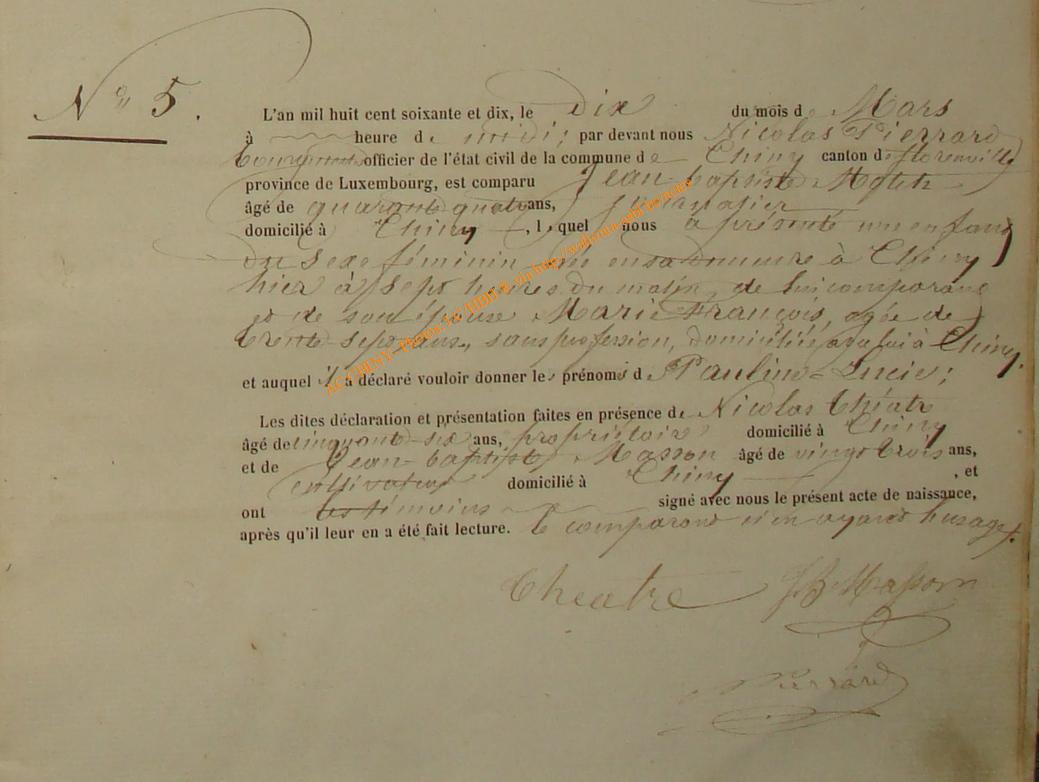 N° 5.
L'an mil huit cent soixante et dix, le Dix du mois de Mars
à heure de midi; par devant nous Nicolas Pierrard
Bourgmestre officier de l'état civil de la commune de Chiny canton de florenville
province de Luxembourg, est comparu Jean-baptiste
âgé de quarante quatre ans, journalier
domicilié à Chiny, lequel nous a présenté un enfant
du sexe féminin né en sa demeure à Chiny
hier à sept heures du matin, de lui comparant
et de son épouse Marie François, agée de
trente-sept ans, sans profession, domiciliée avec lui à Chiny.
et auquel il a déclaré vouloir donner les prénoms de Pauline-Lucie;
Les dites déclaration et présentation faites en présence de Nicolas Théatre
âgé de cinquante-six ans, propriétaire domicilié à Chiny
et de Jean-baptiste Masson âgé de vingt trois ans,
cultivateur domicilié à Chiny, et
ont les témoins signé avec nous le présent acte de naissance,
après qu'il leur en a été fait lecture. le comparant n'en ayant l'usage.
Theatre JB Masson
Pierrard